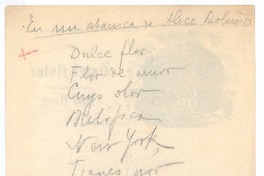 En un abanico de Alice Bolaños
Dulce flor
Flor de amor
Cuyo olor
Melifica
New York,
Tienes por